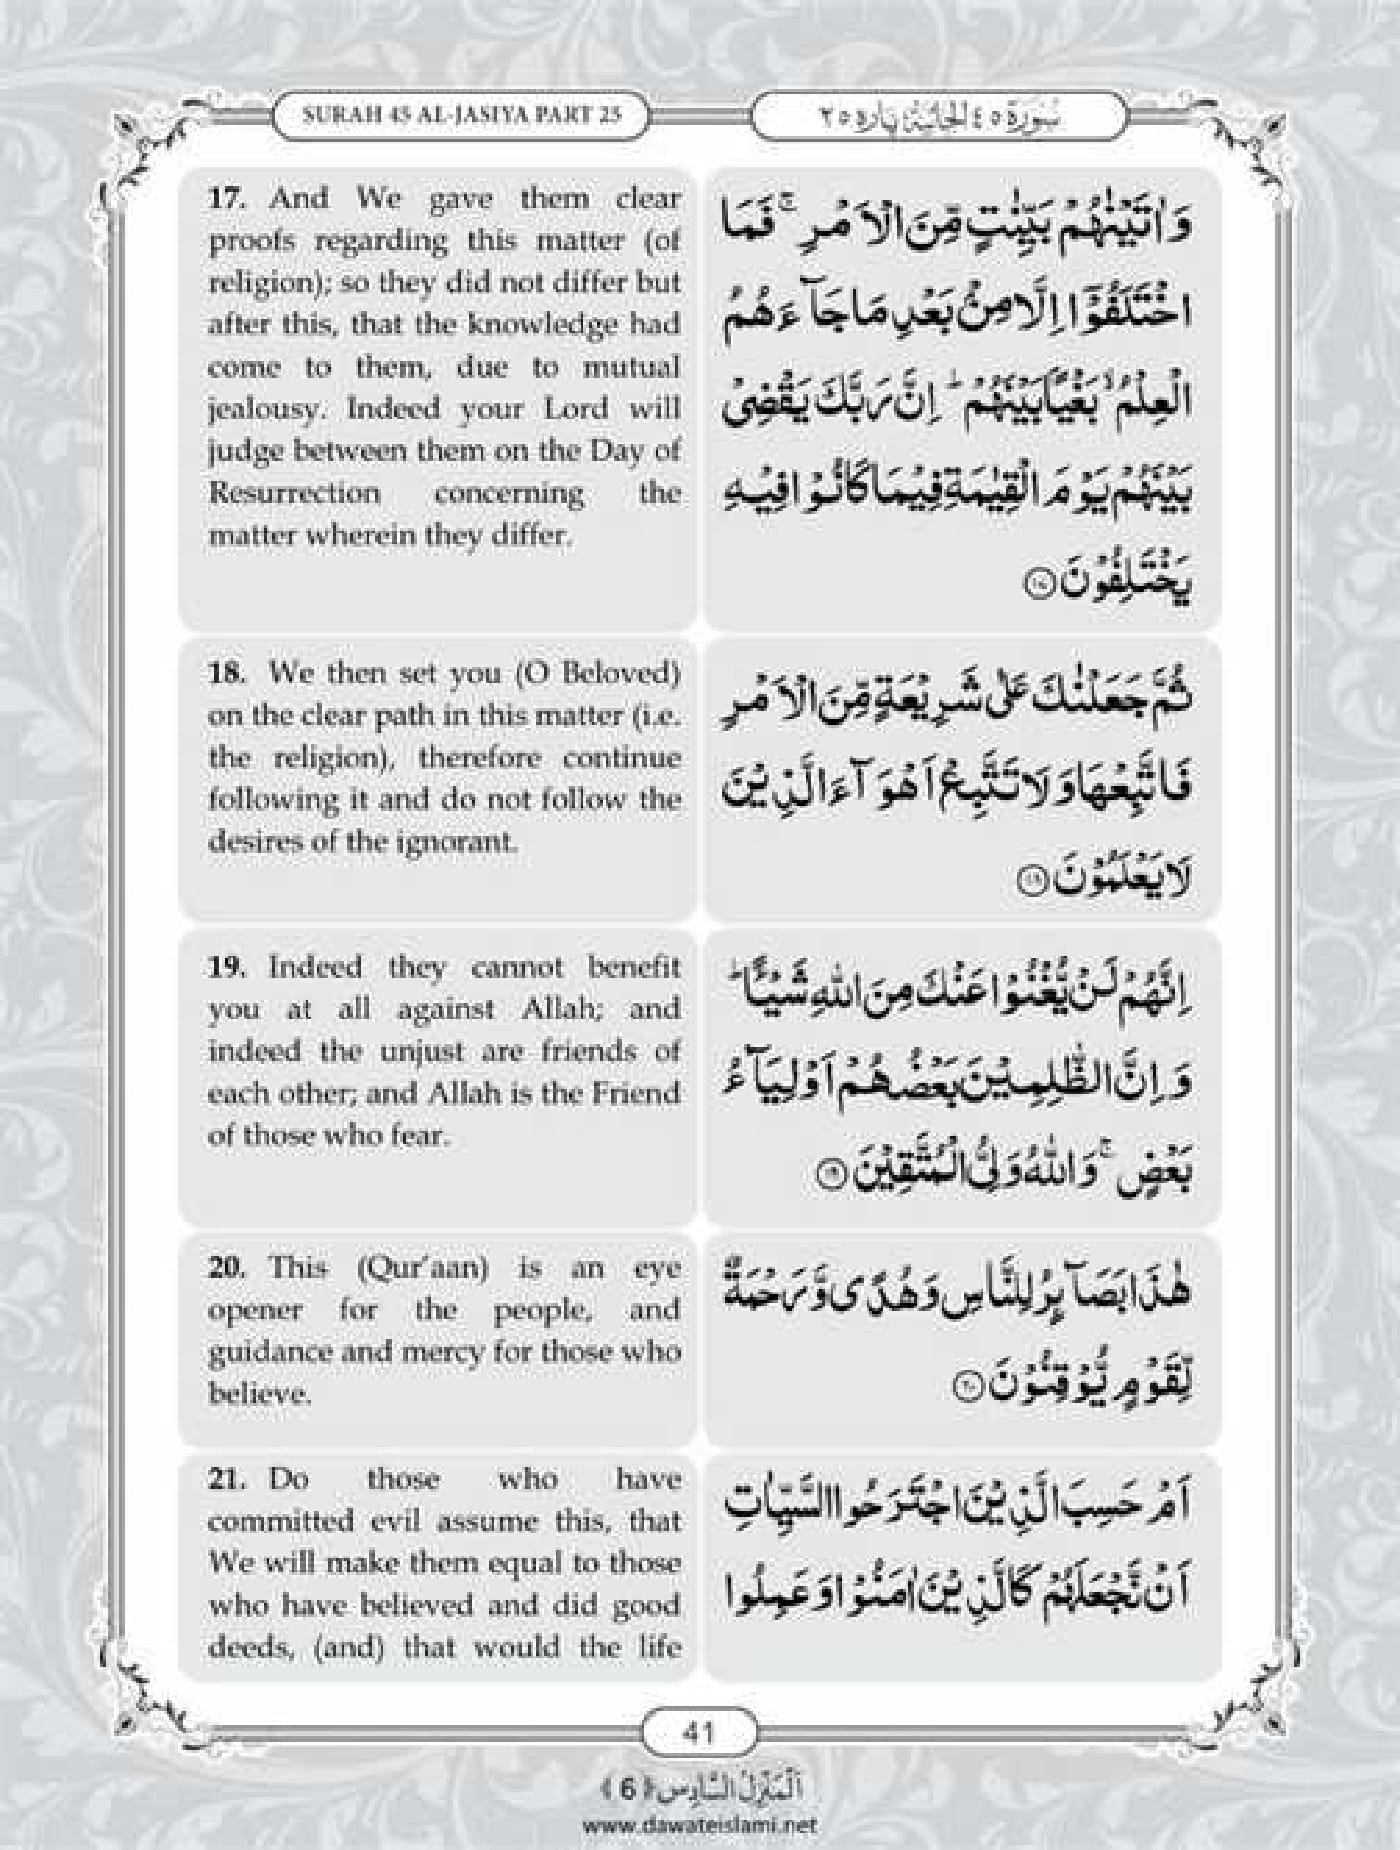 SURAH 45 AL-JASIYA PART 25
سُوْرَة ٤٥ الجَاثِيَة پاره ٢٥
17. And We gave them clear
proofs regarding this matter (of
religion); so they did not differ but
after this, that the knowledge had
come to them, due to mutual
jealousy. Indeed your Lord will
judge between them on the Day of
Resurrection concerning the
matter wherein they differ.
وَاٰتَيْنٰهُمْ بَيِّنٰتٍ مِّنَ الْاَمْرِ ۚ فَمَا
اخْتَلَفُوْۤا اِلَّا مِنْۢ بَعْدِ مَا جَآءَهُمُ
الْعِلْمُ ۙ بَغْيًۢا بَيْنَهُمْ ؕ اِنَّ رَبَّكَ يَقْضِیْ
بَيْنَهُمْ يَوْمَ الْقِيٰمَةِ فِيْمَا كَانُوْا فِيْهِ
يَخْتَلِفُوْنَ ﴿۱۷﴾
18. We then set you (O Beloved)
on the clear path in this matter (i.e.
the religion), therefore continue
following it and do not follow the
desires of the ignorant.
ثُمَّ جَعَلْنٰكَ عَلٰى شَرِيْعَةٍ مِّنَ الْاَمْرِ
فَاتَّبِعْهَا وَلَا تَتَّبِعْ اَهْوَآءَ الَّذِيْنَ
لَا يَعْلَمُوْنَ ﴿۱۸﴾
19. Indeed they cannot benefit
you at all against Allah; and
indeed the unjust are friends of
each other; and Allah is the Friend
of those who fear.
اِنَّهُمْ لَنْ يُّغْنُوْا عَنْكَ مِنَ اللهِ شَيْـًٔا ؕ
وَ اِنَّ الظّٰلِمِيْنَ بَعْضُهُمْ اَوْلِيَآءُ
بَعْضٍ ۚ وَاللهُ وَلِیُّ الْمُتَّقِيْنَ ﴿۱۹﴾
20. This (Qur’aan) is an eye
opener for the people, and
guidance and mercy for those who
believe.
هٰذَا بَصَآىِٕرُ لِلنَّاسِ وَهُدًى وَّرَحْمَةٌ
لِّقَوْمٍ يُّوْقِنُوْنَ ﴿۲۰﴾
21. Do those who have
committed evil assume this, that
We will make them equal to those
who have believed and did good
deeds, (and) that would the life
اَمْ حَسِبَ الَّذِيْنَ اجْتَرَحُوا السَّيِّاٰتِ
اَنْ نَّجْعَلَهُمْ كَالَّذِيْنَ اٰمَنُوْا وَعَمِلُوا
41
اَلْمَنْزِلُ السَّادِس ﴿6﴾
www.dawateislami.net